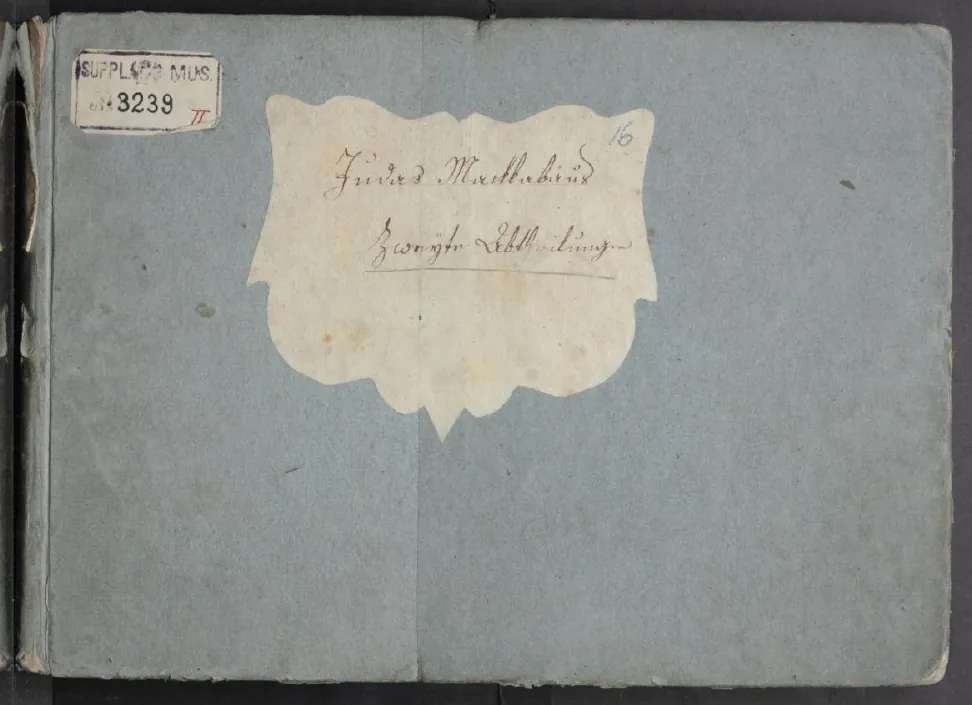 SUPPL. MUS.
3239 II
16
Judas Mackabäus
Zweyte Abtheilung